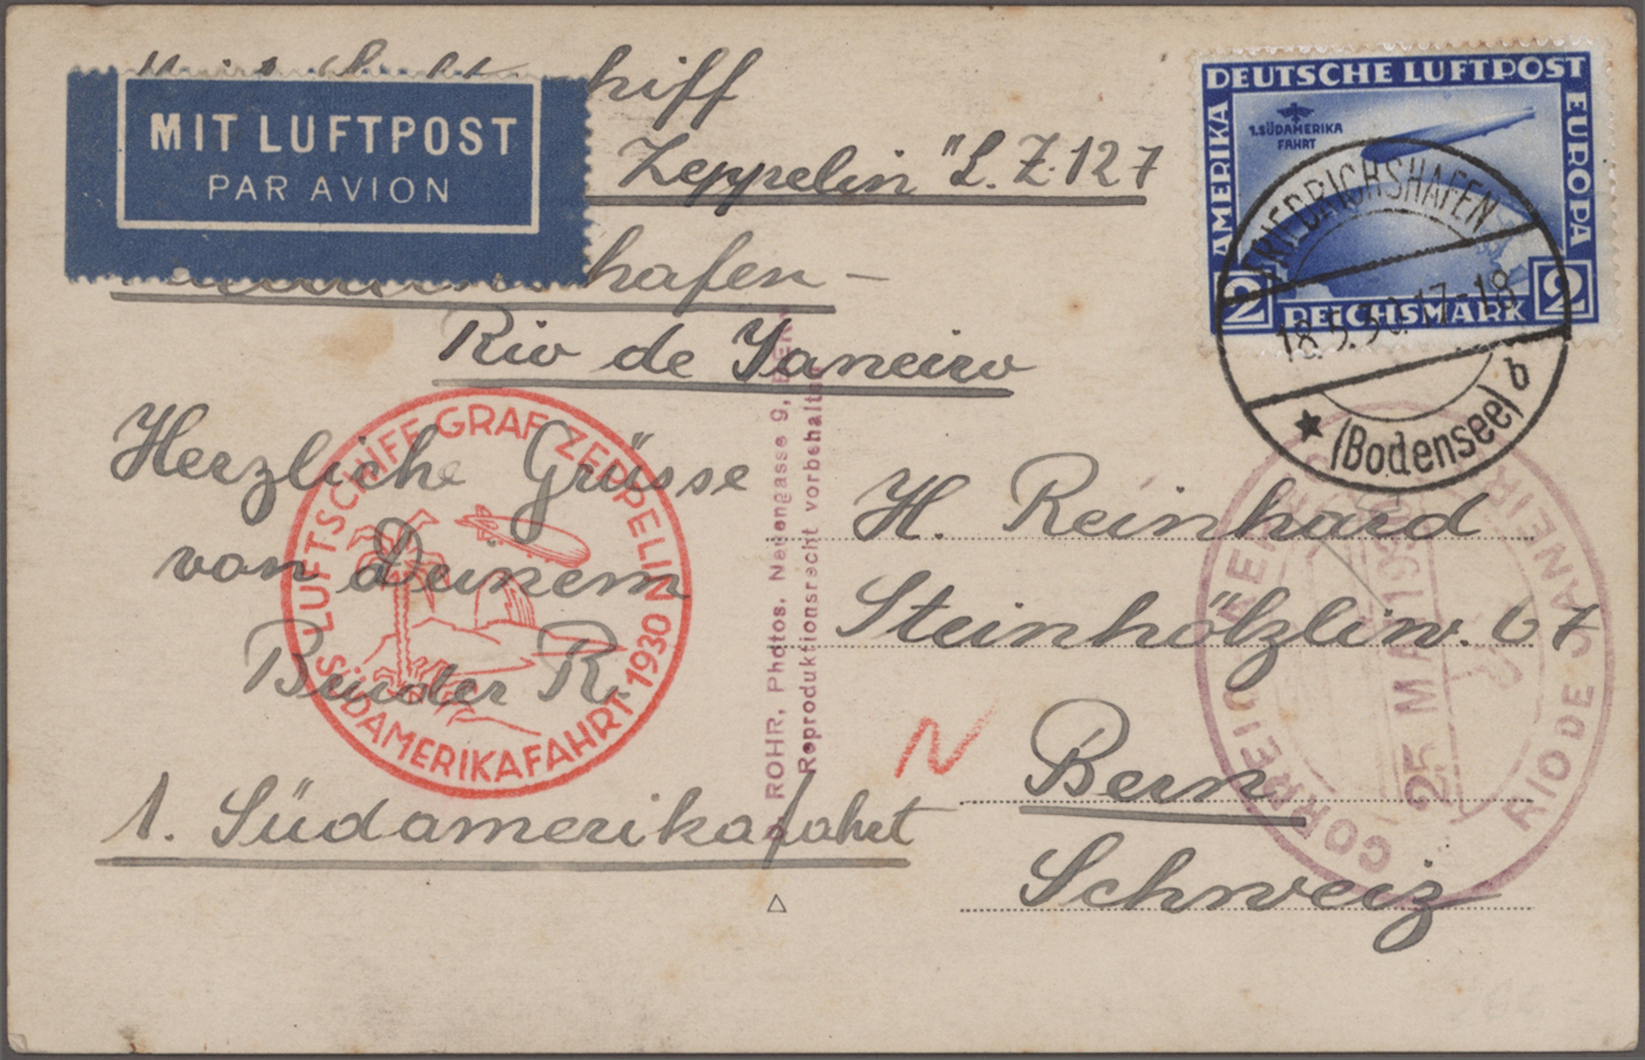 hiff
MIT LUFTPOST
PAR AVION
Zeppelin" L. Z. 127
hafen –
Rio de Janeiro
Herzliche Grüsse
von Deinem
Bruder R.
1. Südamerikafahrt
LUFTSCHIFF GRAF ZEPPELIN
SÜDAMERIKAFAHRT 1930
ROHR, Photos, Neuengasse 9, BERN
Reproduktionsrecht vorbehalten
DEUTSCHE LUFTPOST
AMERIKA
EUROPA
1. SÜDAMERIKA
FAHRT
2 REICHSMARK 2
FRIEDRICHSHAFEN
18.5.30.17-18
(Bodensee) b
H. Reinhard
Steinhölzliw. 67
N
Bern
Schweiz
CORREIO AEREO
25 MAI 193
RIO DE JANEIRO